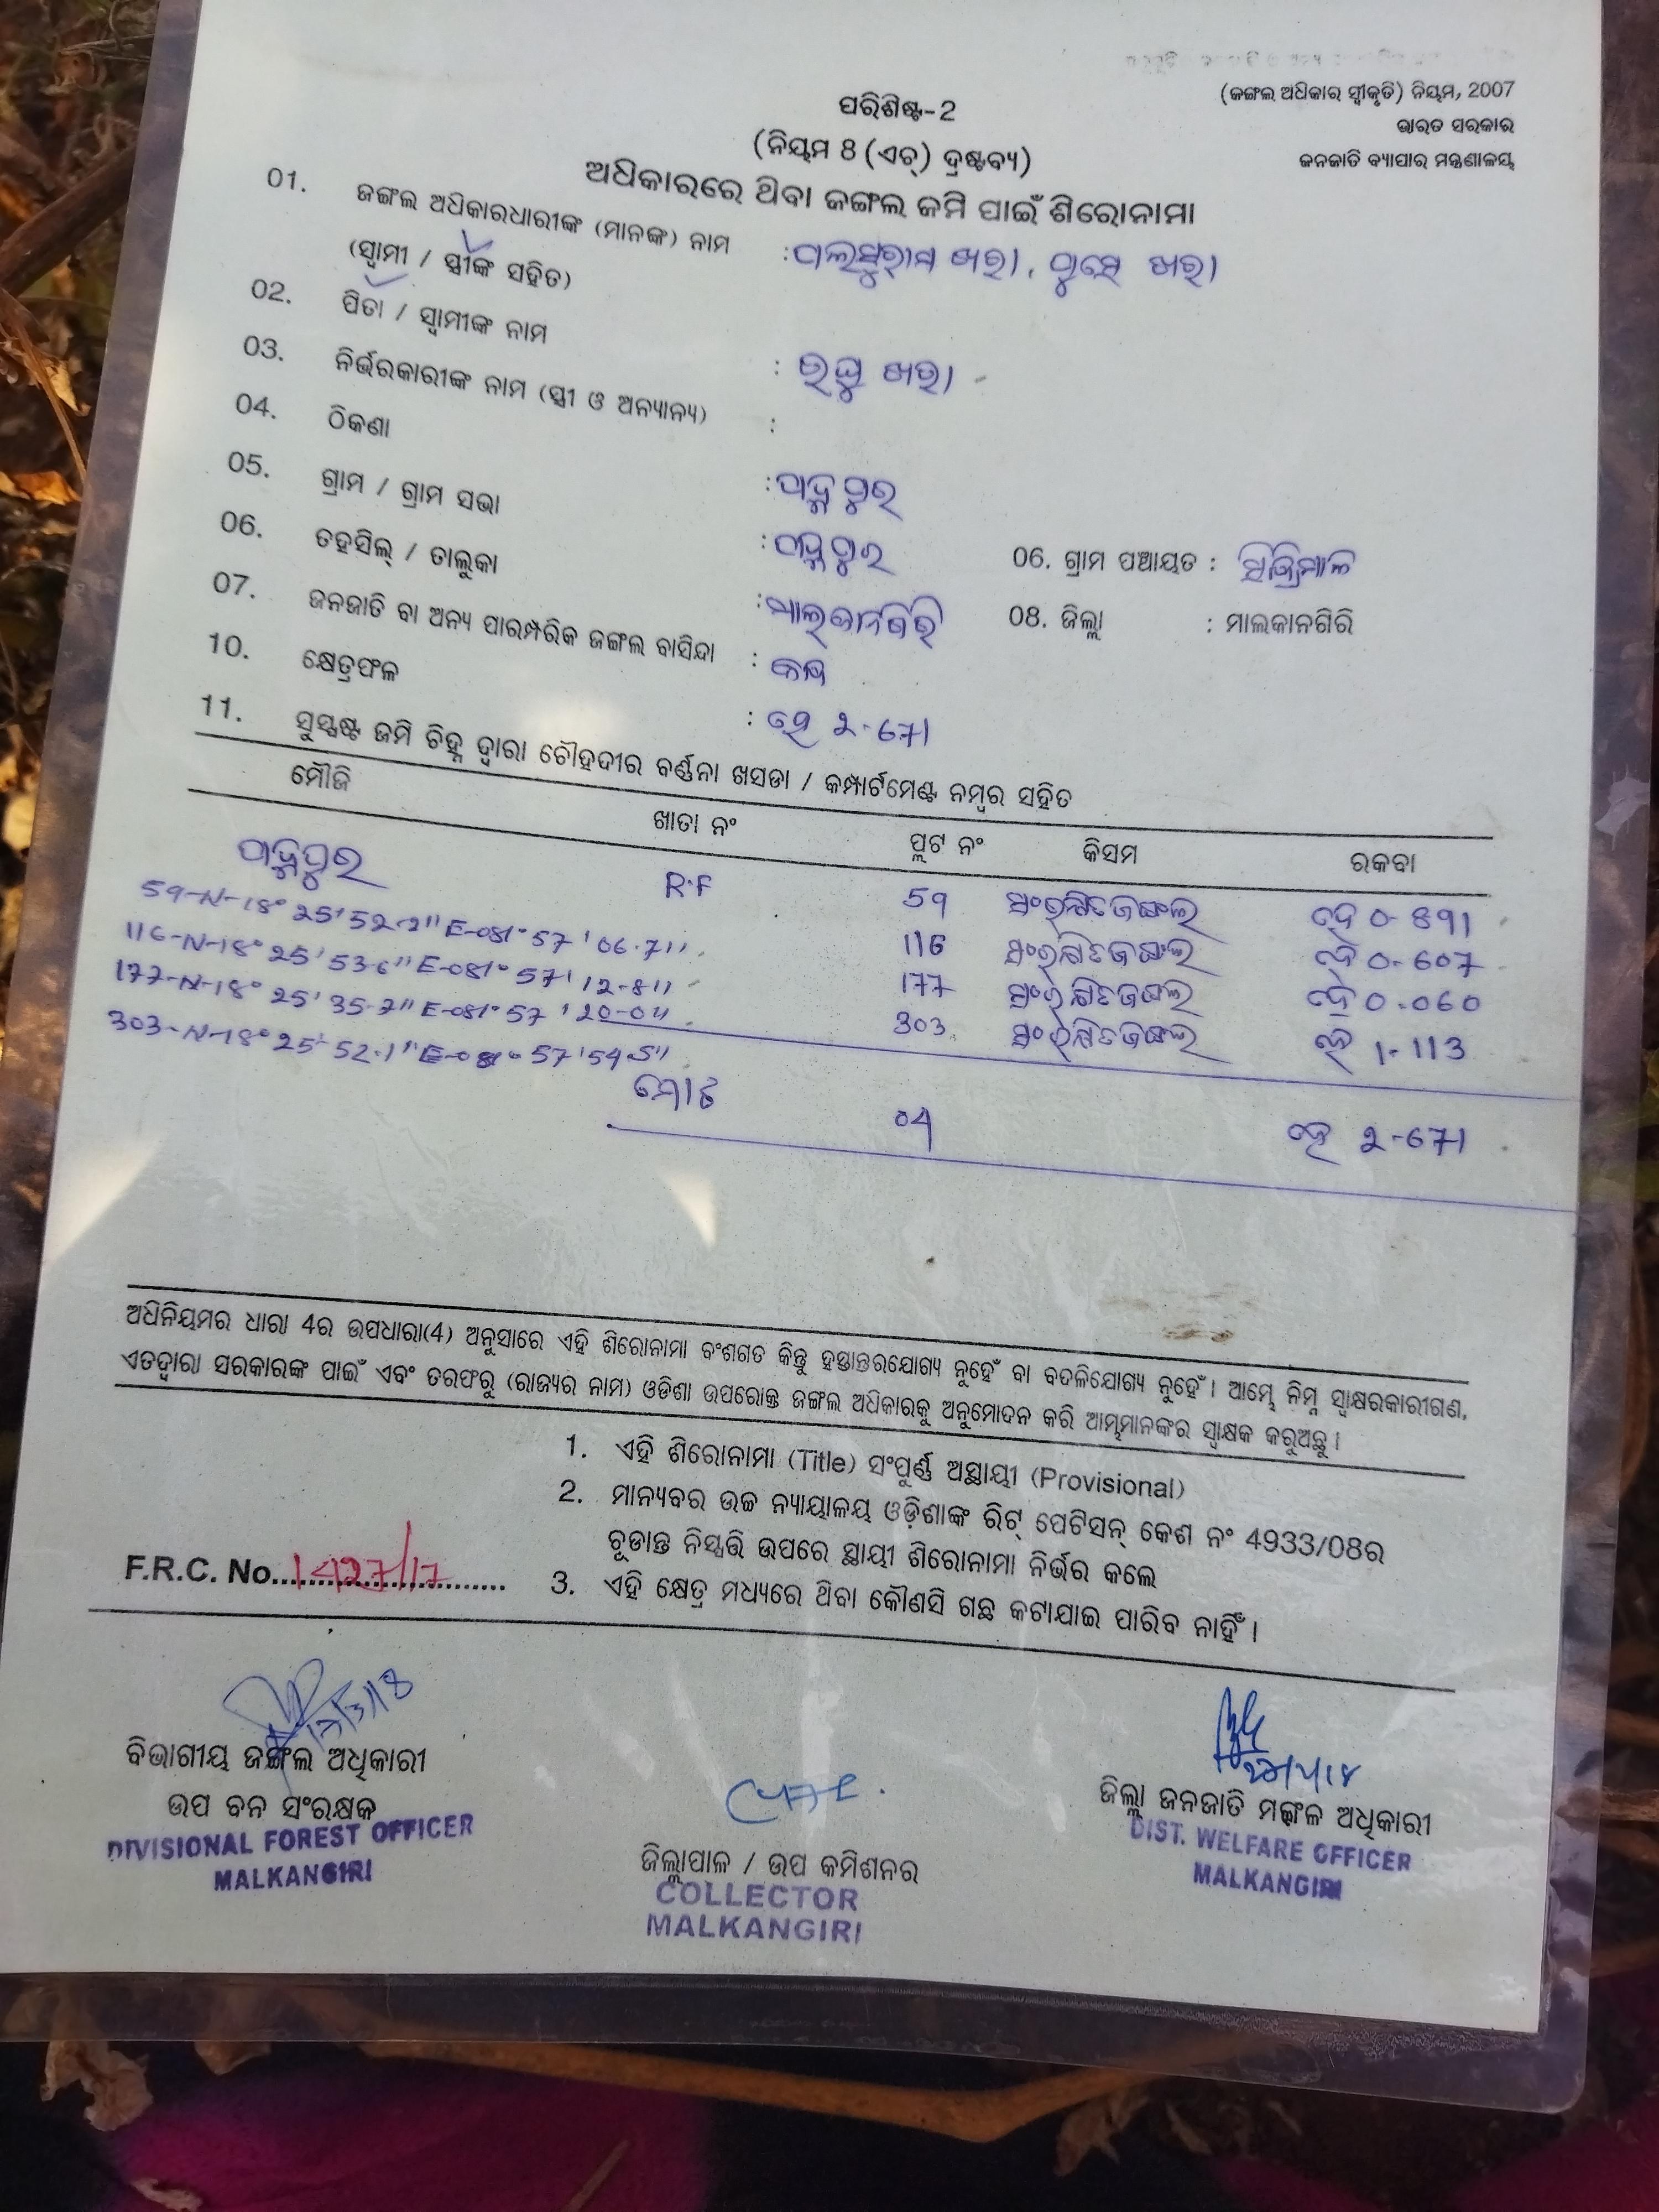 ପରିଶିଷ୍ଟ-2
(ଜଙ୍ଗଲ ଅଧିକାର ସ୍ୱୀକୃତି) ନିୟମ, 2007
ଭାରତ ସରକାର
ଜନଜାତି ବ୍ୟାପାର ମନ୍ତ୍ରଣାଳୟ
(ନିୟମ 8 (ଏଚ୍) ଦ୍ରଷ୍ଟବ୍ୟ)
ଅଧିକାରରେ ଥିବା ଜଙ୍ଗଲ ଜମି ପାଇଁ ଶିରୋନାମା
01. ଜଙ୍ଗଲ ଅଧିକାରଧାରୀଙ୍କ (ମାନଙ୍କ) ନାମ
(ସ୍ୱାମୀ / ସ୍ତ୍ରୀଙ୍କ ସହିତ) : ଖରା, ଖରା
02. ପିତା / ସ୍ୱାମୀଙ୍କ ନାମ : ରଘୁ ଖରା
03. ନିର୍ଭରକାରୀଙ୍କ ନାମ (ସ୍ତ୍ରୀ ଓ ଅନ୍ୟାନ୍ୟ) :
04. ଠିକଣା : ପଦ୍ମପୁର
05. ଗ୍ରାମ / ଗ୍ରାମ ସଭା : ପଦ୍ମପୁର 06. ଗ୍ରାମ ପଞ୍ଚାୟତ :
06. ତହସିଲ୍ / ତାଲୁକା : ମାଲ୍କାନଗିରି 08. ଜିଲ୍ଲା : ମାଲକାନଗିରି
07. ଜନଜାତି ବା ଅନ୍ୟ ପାରମ୍ପରିକ ଜଙ୍ଗଲ ବାସିନ୍ଦା :
10. କ୍ଷେତ୍ରଫଳ : ହେ 2-671
11. ସୁସ୍ପଷ୍ଟ ଜମି ଚିହ୍ନ ଦ୍ୱାରା ଚୌହଦୀର ବର୍ଣ୍ଣନା ଖସଡା / କମ୍ପାର୍ଟମେଣ୍ଟ ନମ୍ବର ସହିତ
ମୌଜି ଖାତା ନଂ ପ୍ଲଟ ନଂ କିସମ ରକବା
ପଦ୍ମପୁର R.F 59 ସଂରକ୍ଷିତ ଜଙ୍ଗଲ ହେ 0-891
59-N-18° 25' 52.2" E-081° 57' 06.7" 116 ସଂରକ୍ଷିତ ଜଙ୍ଗଲ ହେ 0-607
116-N-18° 25' 53.6" E-081° 57' 12.8" 177 ସଂରକ୍ଷିତ ଜଙ୍ଗଲ ହେ 0.060
177-N-18° 25' 35.2" E-081° 57' 20-04 303 ସଂରକ୍ଷିତ ଜଙ୍ଗଲ ହେ 1-113
303-N-18° 25' 52.1" E-081° 57' 54.5"
ମୋଟ 04 ହେ 2-671
ଅଧିନିୟମର ଧାରା 4ର ଉପଧାରା(4) ଅନୁସାରେ ଏହି ଶିରୋନାମା ବଂଶଗତ କିନ୍ତୁ ହସ୍ତାନ୍ତରଯୋଗ୍ୟ ନୁହେଁ ବା ବଦଳିଯୋଗ୍ୟ ନୁହେଁ। ଆମ୍ଭେ ନିମ୍ନ ସ୍ୱାକ୍ଷରକାରୀଗଣ,
ଏତଦ୍ଦ୍ୱାରା ସରକାରଙ୍କ ପାଇଁ ଏବଂ ତରଫରୁ (ରାଜ୍ୟର ନାମ) ଓଡିଶା ଉପରୋକ୍ତ ଜଙ୍ଗଲ ଅଧିକାରକୁ ଅନୁମୋଦନ କରି ଆମ୍ଭମାନଙ୍କର ସ୍ୱାକ୍ଷକ କରୁଅଛୁ।
1. ଏହି ଶିରୋନାମା (Title) ସଂପୂର୍ଣ୍ଣ ଅସ୍ଥାୟୀ (Provisional)
2. ମାନ୍ୟବର ଉଚ୍ଚ ନ୍ୟାୟାଳୟ ଓଡ଼ିଶାଙ୍କ ରିଟ୍ ପେଟିସନ୍ କେଶ ନଂ 4933/08ର
ଚୂଡାନ୍ତ ନିସ୍ପତ୍ତି ଉପରେ ସ୍ଥାୟୀ ଶିରୋନାମା ନିର୍ଭର କଲେ
F.R.C. No. 1427/17
3. ଏହି କ୍ଷେତ୍ର ମଧ୍ୟରେ ଥିବା କୌଣସି ଗଛ କଟାଯାଇ ପାରିବ ନାହିଁ।
ବିଭାଗୀୟ ଜଙ୍ଗଲ ଅଧିକାରୀ
ଉପ ବନ ସଂରକ୍ଷକ
DIVISIONAL FOREST OFFICER
MALKANGIRI
ଜିଲ୍ଲାପାଳ / ଉପ କମିଶନର
COLLECTOR
MALKANGIRI
ଜିଲ୍ଲା ଜନଜାତି ମଙ୍ଗଳ ଅଧିକାରୀ
DIST. WELFARE OFFICER
MALKANGIRI